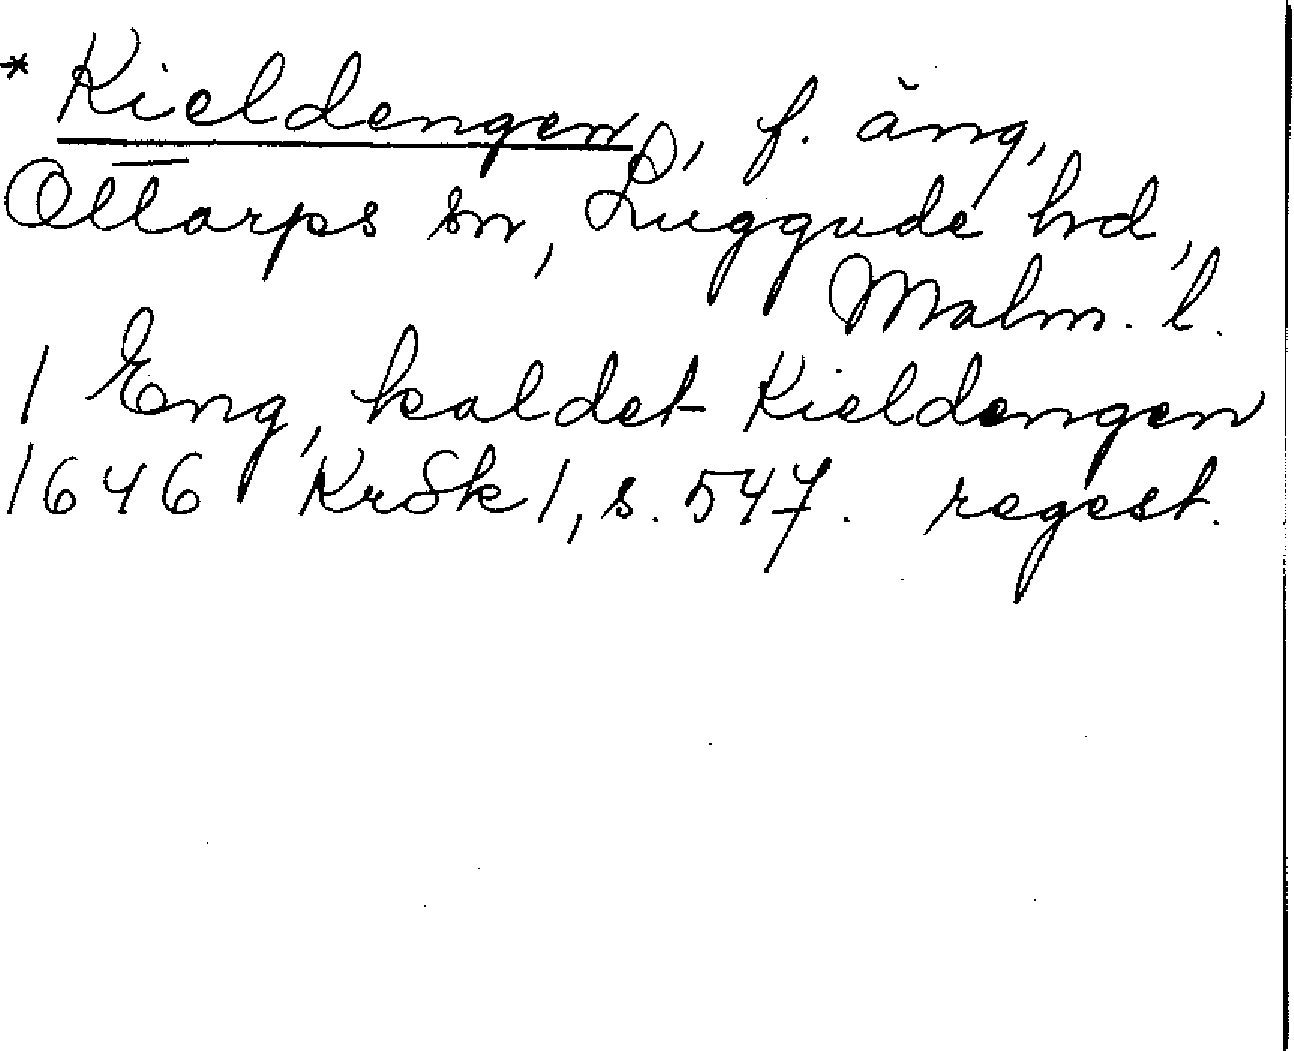 * Kieldengen, f. äng,
Ottarps sn, Luggude hd,
Malm. l.
1 Eng, kaldet Kieldengen
1646 KrSk 1, s. 547. regest.